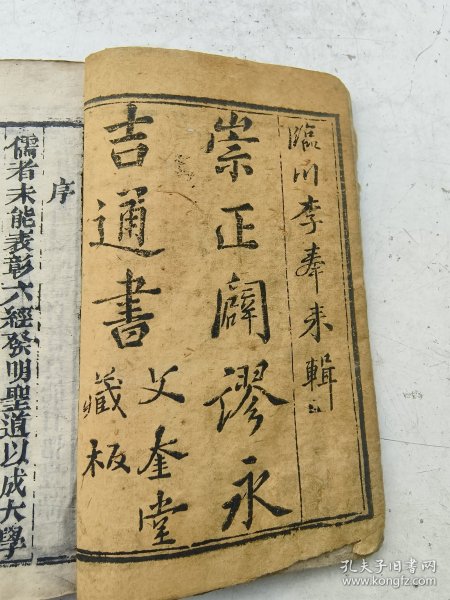 臨川李奉來輯
崇正闢謬永
吉通書
文奎堂
藏板
序
儒者未能表彰六經發明聖道以成大學
孔夫子旧书网
www.kongfz.com